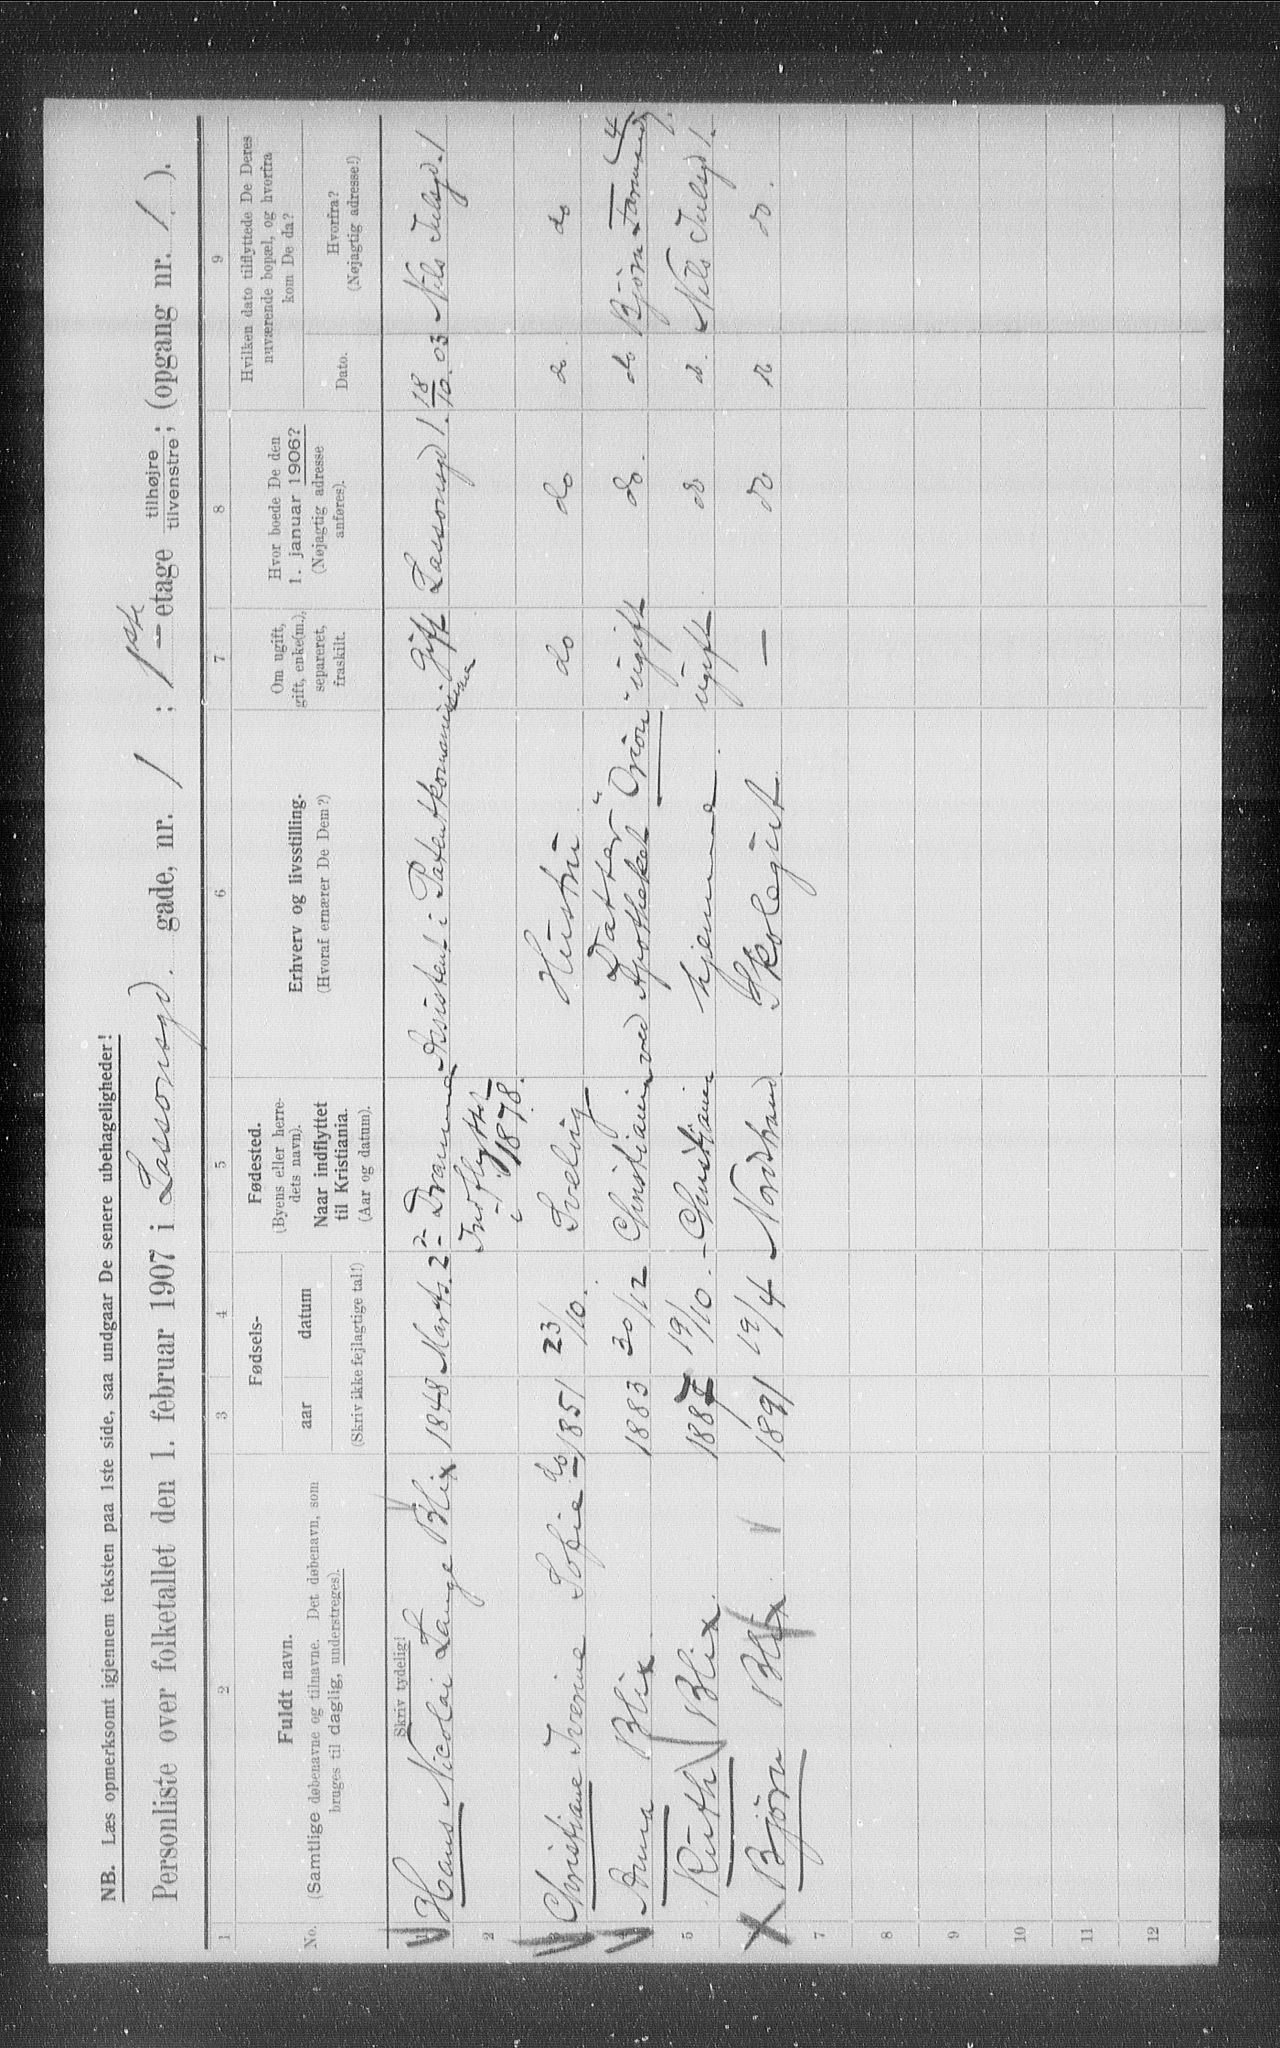 NB. Læs opmerksomt igjennem teksten paa 1ste side, saa undgaar De senere ubehageligheder!
Personliste over folketallet den 1. februar 1907 i Lassonsgd. gade, nr. 1 ; 1ste etage tilhøjre/tilvenstre; (opgang nr. 1.).
1 2 3 4 5 6 7 8 9
No.
Fuldt navn.
(Samtlige døbenavne og tilnavne. Det døbenavn, som
bruges til daglig, understreges).
Skriv tydelig!
Fødsels-
aar datum
(Skriv ikke fejlagtige tal!)
Fødested.
(Byens eller herre-
dets navn).
Naar indflyttet
til Kristiania.
(Aar og datum).
Erhverv og livsstilling.
(Hvoraf ernærer De Dem?)
Om ugift,
gift, enke(m.),
separeret,
fraskilt.
Hvor boede De den
1. januar 1906?
(Nøjagtig adresse
anføres).
Hvilken dato tilflyttede De Deres
nuværende bopæl, og hvorfra
kom De da?
Dato.
Hvorfra?
(Nøjagtig adresse!)
1 Hans Nicolai Lange Blix 1848 Marts. 2 Assistent i Patentkommis Gift Lassonsgd 1. 18/10 03 Nils Julsgd. 1
2 Indflyttet
i 1878.
3 Christiane Iverine Sofie do 1851 23/10. Svelvig Hustru do do do. do
Datter
Anna Blix 1883 30/12 Christiania ved Apotheket Orion ugift do. do Bjørn Farmands 4
5 Ruth Blix. 1887 19/10. Christiania hjemme ugift do d. Nils Julsgd 1.
Bjørn Blix 1891 19/4 Nordstrand Skolegut — do do.
7
8
9
10
11
12